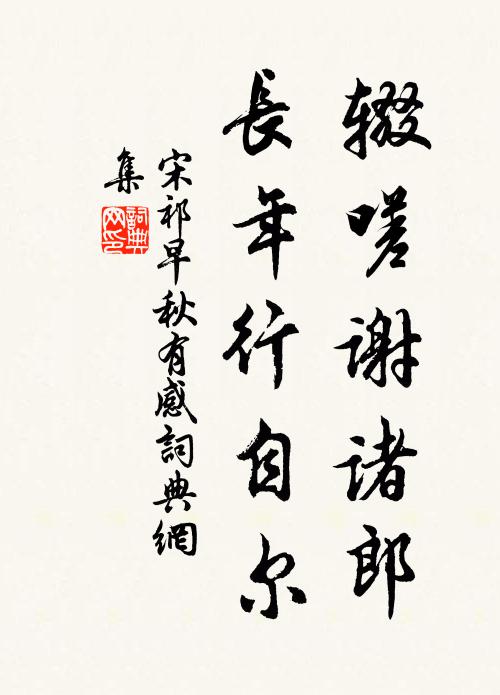 辍嗟谢诸郎
長年行自尔
宋祁早秋有感詞典網
集
詞典网印